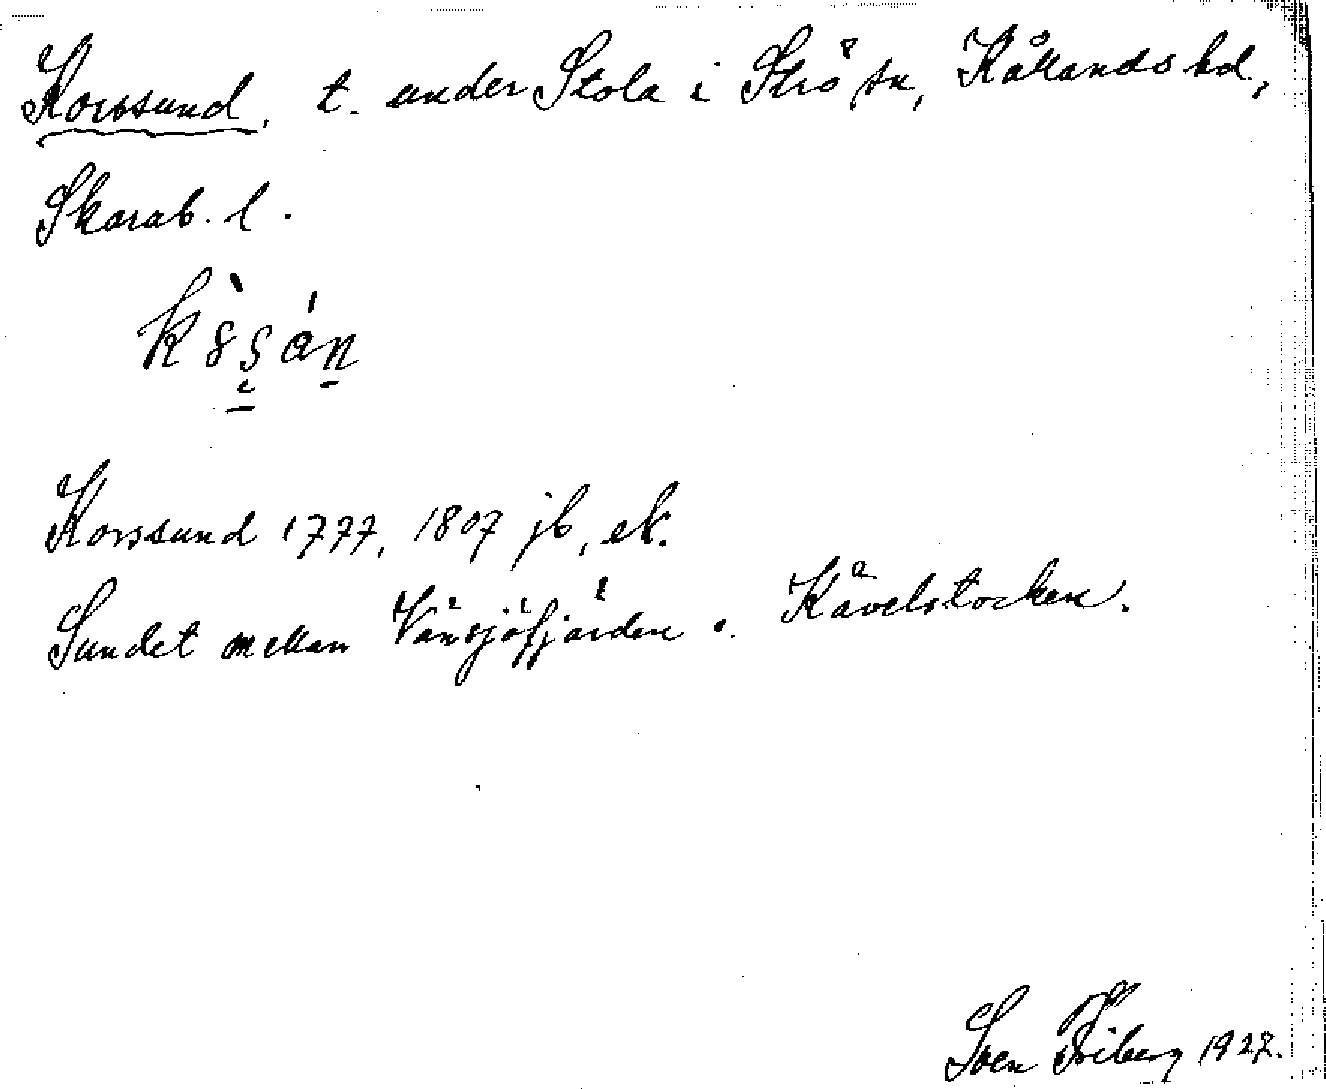 Korssund, t. under Stola i Strö sn, Kållands hd,
Skarab. l.
Korssund 1777, 1807 jb, ek.
Sundet mellan Vänsjöfjärden o. Kåvelstocken.
Sven Friberg 1927.